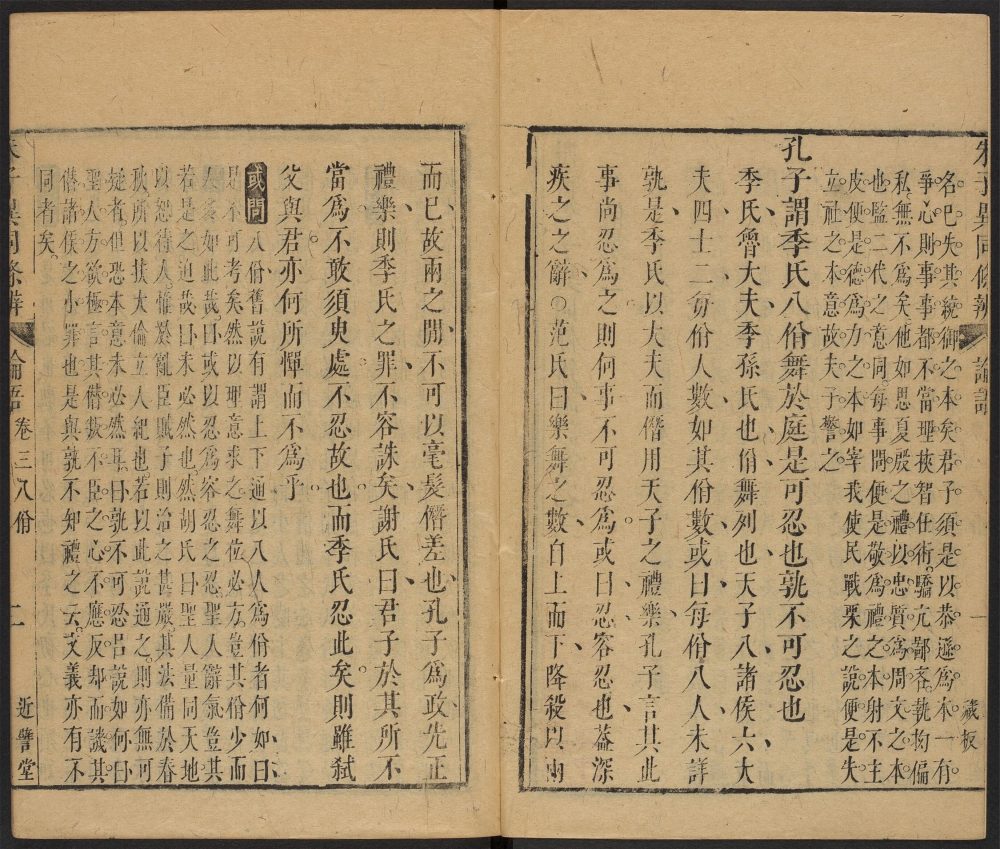 朱子異同條辨 論語 一 藏板
名已失其統御之本矣君子須是以恭遜為本一有
爭心則事事都不當理挾智任術驕亢鄙吝執拘偏
私無不為矣他如思夏殷之禮以忠質為周文之本
也監二代之意同每事問便是敬為禮之本射不主
皮便是德為力之本如宰我使民戰栗之說便是失
立社之本意故夫子警之
孔子謂季氏八佾舞於庭是可忍也孰不可忍也
季氏魯大夫季孫氏也佾舞列也天子八諸侯六大
夫四士二每佾人數如其佾數或曰每佾八人未詳
孰是季氏以大夫而僭用天子之禮樂孔子言其此
事尚忍為之則何事不可忍為或曰忍容忍也蓋深
疾之之辭○范氏曰樂舞之數自上而下降殺以兩
而已故兩之閒不可以毫髮僭差也孔子為政先正
禮樂則季氏之罪不容誅矣謝氏曰君子於其所不
當為不敢須臾處不忍故也而季氏忍此矣則雖弒
父與君亦何所憚而不為乎
或問八佾舊說有謂上下通以八人為佾者何如曰
是不可考矣然以理意求之舞位必方豈其佾少而
人多如此哉曰或以忍為容忍之忍聖人辭氣豈其
若是之迫哉曰未必然也然胡氏曰聖人量同天地
以恕待人惟於亂臣賊子則治之甚嚴其法備於春
秋所以扶大倫立人紀也若以此說通之則亦無可
疑者但恐本意未必然耳曰孰不可忍呂說如何曰
聖人方欲極言其僭叛不臣之心不應反却而譏其
僭諸侯之小罪也是與孰不知禮之云文義亦有不
同者矣
朱子異同條辨 論語 卷三八佾 二 近譬堂